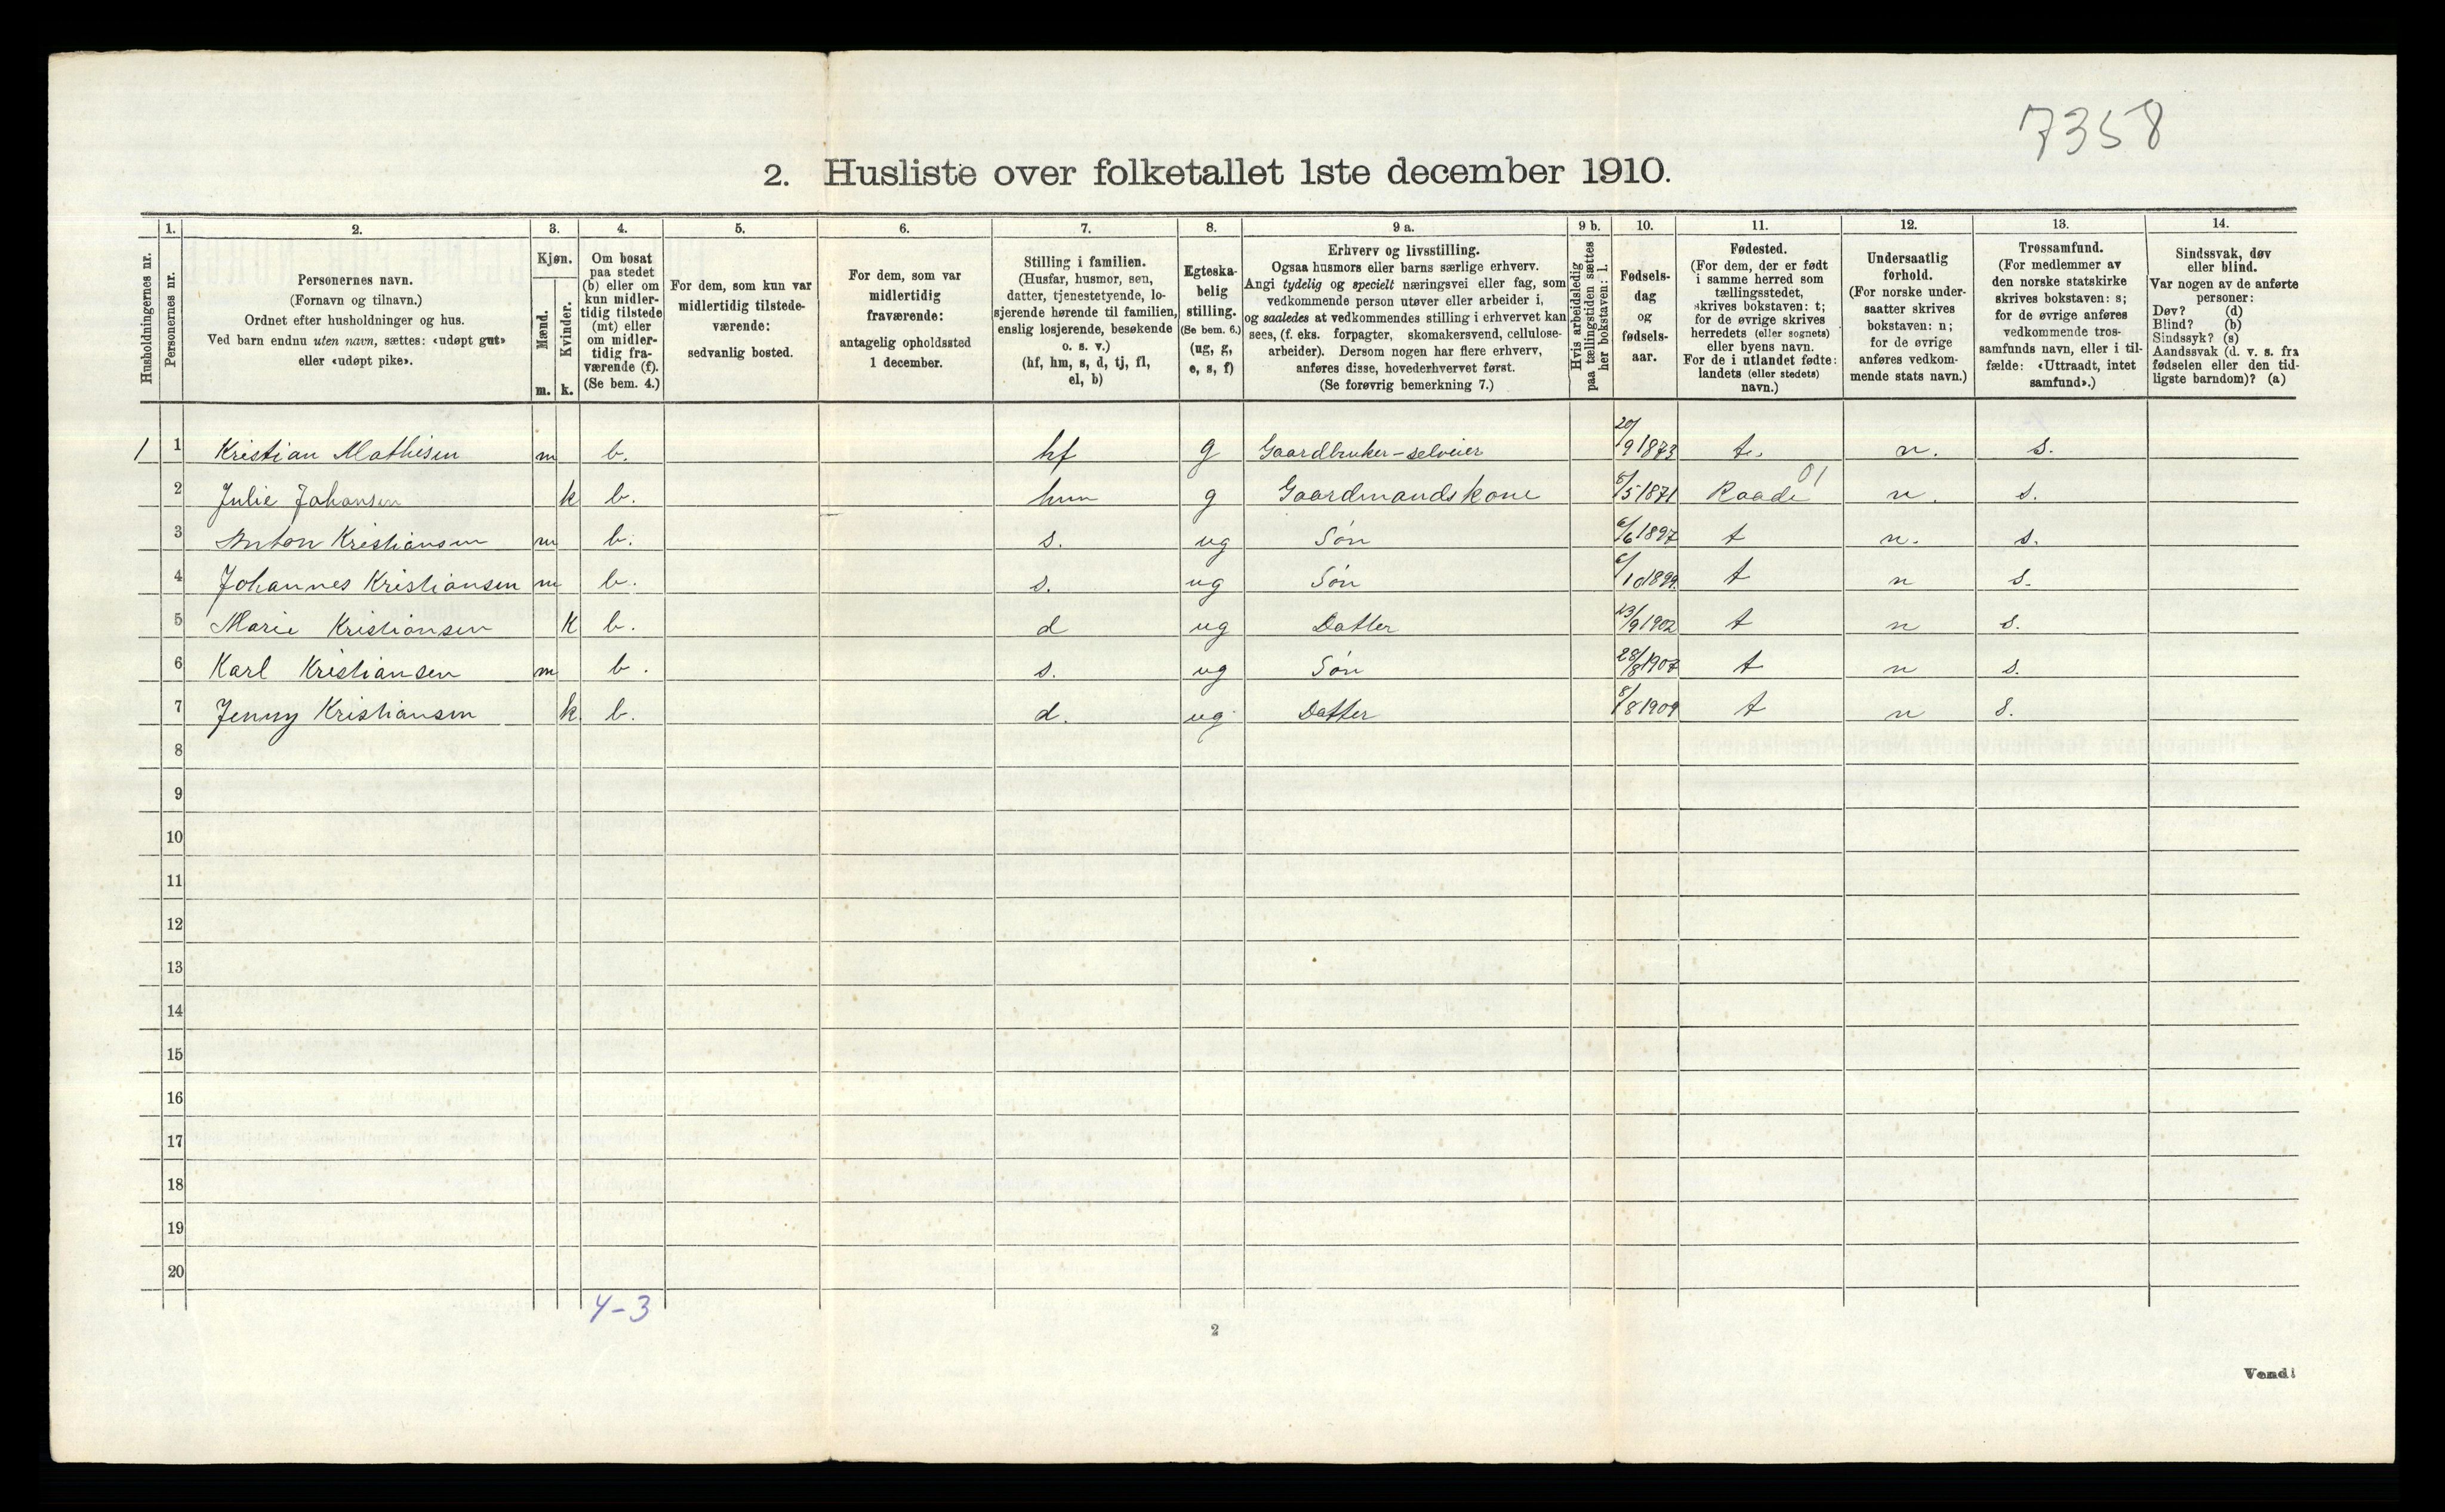 7358
2. Husliste over folketallet 1ste december 1910.
Husholdningernes nr.
1.
Personernes nr.
2.
Personernes navn.
(Fornavn og tilnavn.)
Ordnet efter husholdninger og hus.
Ved barn endnu uten navn, sættes: «udøpt gut»
eller «udøpt pike».
3.
Kjøn.
Mænd.
m.
Kvinder.
k.
4.
Om bosat
paa stedet
(b) eller om
kun midler-
tidig tilstede
(mt) eller
om midler-
tidig fra-
værende (f).
(Se bem. 4.)
5.
For dem, som kun var
midlertidig tilstede-
værende:
sedvanlig bosted.
6.
For dem, som var
midlertidig
fraværende:
antagelig opholdssted
1 december.
7.
Stilling i familien.
(Husfar, husmor, søn,
datter, tjenestetyende, lo-
sjerende hørende til familien,
enslig losjerende, besøkende
o. s. v.)
(hf, hm, s, d, tj, fl,
el, b)
8.
Egteska-
belig
stilling.
(Se bem. 6.)
(ug, g,
e, s, f)
9 a.
Erhverv og livsstilling.
Ogsaa husmors eller barns særlige erhverv.
Angi tydelig og specielt næringsvei eller fag, som
vedkommende person utøver eller arbeider i,
og saaledes at vedkommendes stilling i erhvervet kan
sees, (f. eks. forpagter, skomakersvend, cellulose-
arbeider). Dersom nogen har flere erhverv,
anføres disse, hovederhvervet først.
(Se forøvrig bemerkning 7.)
9 b.
Hvis arbeidsledig
paa tællingstiden sættes
her bokstaven: l.
10.
Fødsels-
dag
og
fødsels-
aar.
11.
Fødested.
(For dem, der er født
i samme herred som
tællingsstedet,
skrives bokstaven: t;
for de øvrige skrives
herredets (eller sognets)
eller byens navn.
For de i utlandet fødte:
landets (eller stedets)
navn.)
12.
Undersaatlig
forhold.
(For norske under-
saatter skrives
bokstaven: n;
for de øvrige
anføres vedkom-
mende stats navn.)
13.
Trossamfund.
(For medlemmer av
den norske statskirke
skrives bokstaven: s;
for de øvrige anføres
vedkommende tros-
samfunds navn, eller i til-
fælde: «Uttraadt, intet
samfund».)
14.
Sindssvak, døv
eller blind.
Var nogen av de anførte
personer:
Døv? (d)
Blind? (b)
Sindssyk? (s)
Aandssvak (d. v. s. fra
fødselen eller den tid-
ligste barndom)? (a)
1 1 Kristian Mathisen m b. hf g Gaardbruker-selveier 20/9 1873 t. n. s.
2 Julie Johansen k b. hm g Gaardmandskone 8/5 1871 Raade 01 n. s.
3 Anton Kristiansen m b. s. ug Søn 6/6 1897 t n. s.
4 Johannes Kristiansen m b. s. ug Søn 6/10 1899 t n s.
5 Marie Kristiansen k b. d ug Datter 23/9 1902 t n s.
6 Karl Kristiansen m b. s. ug Søn 28/8 1907 t n s.
7 Jenny Kristiansen k. b. d. ug Datter 8/8 1909 t n s.
8
9
10
11
12
13
14
15
16
17
18
19
20
4-3
2
Vend!